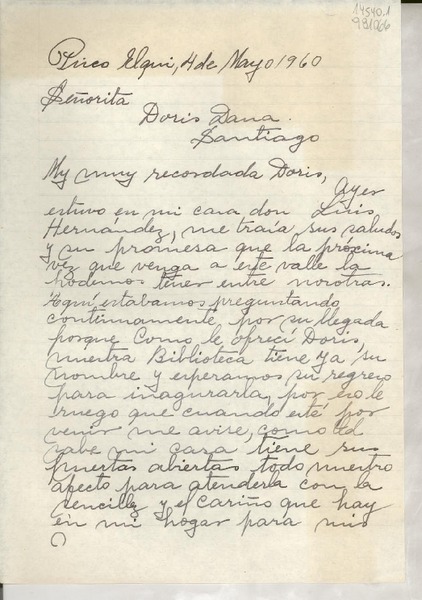 14540.1
991066
Pisco Elqui, 4 de Mayo 1960
Señorita
Doris Dana.
Santiago
My muy recordada Doris,
Ayer
estuvo en mi casa don Luis
Hernandez, me traía sus saludos
y su promesa que la proxima
vez que venga a este valle la
hodemos tener entre nosotras.
Aquí estabamos preguntando
continuamente por su llegada
porque como le ofrecí Doris,
nuestra Biblioteca tiene ya su
nombre y esperamos su regreso
para inagurarla, por eso le
ruego que cuando esté por
venir me avise, como Ud
sabe mi casa tiene sus
puertas abiertas todo nuestro
afecto para atenderla con la
sencillez y el cariño que hay
en mi hogar para mis